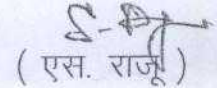 ( एस. राजू )